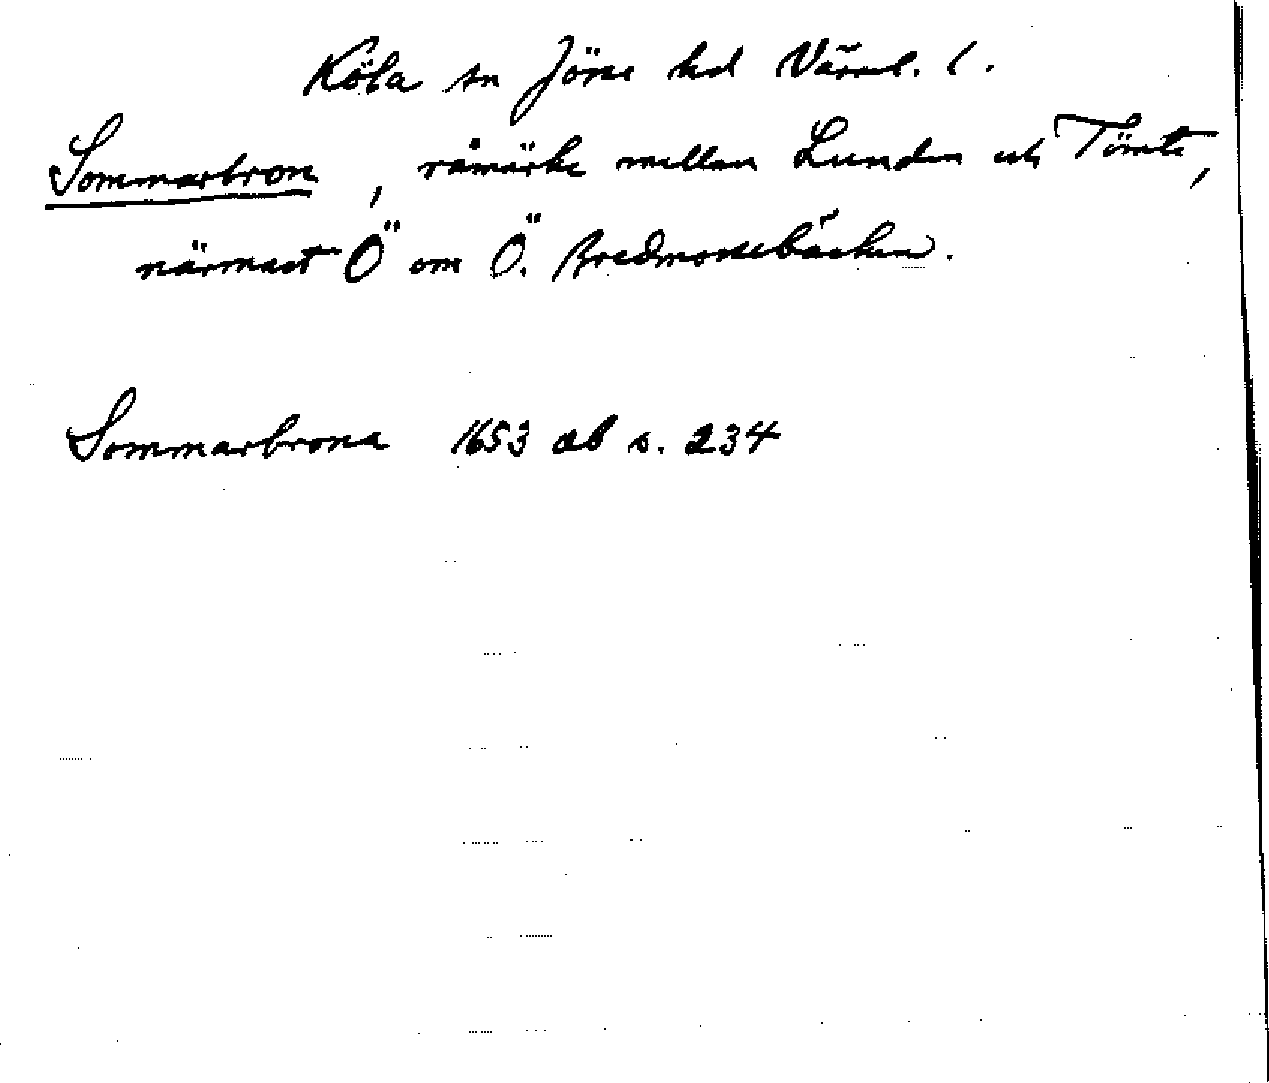 Köla sn Jösse hd Värml. l.
Sommarbron, råmärke mellan Lunden och Tömte,
närmast Ö om Ö. Bredmossebäcken.
Sommarbrona 1653 ab s. 234